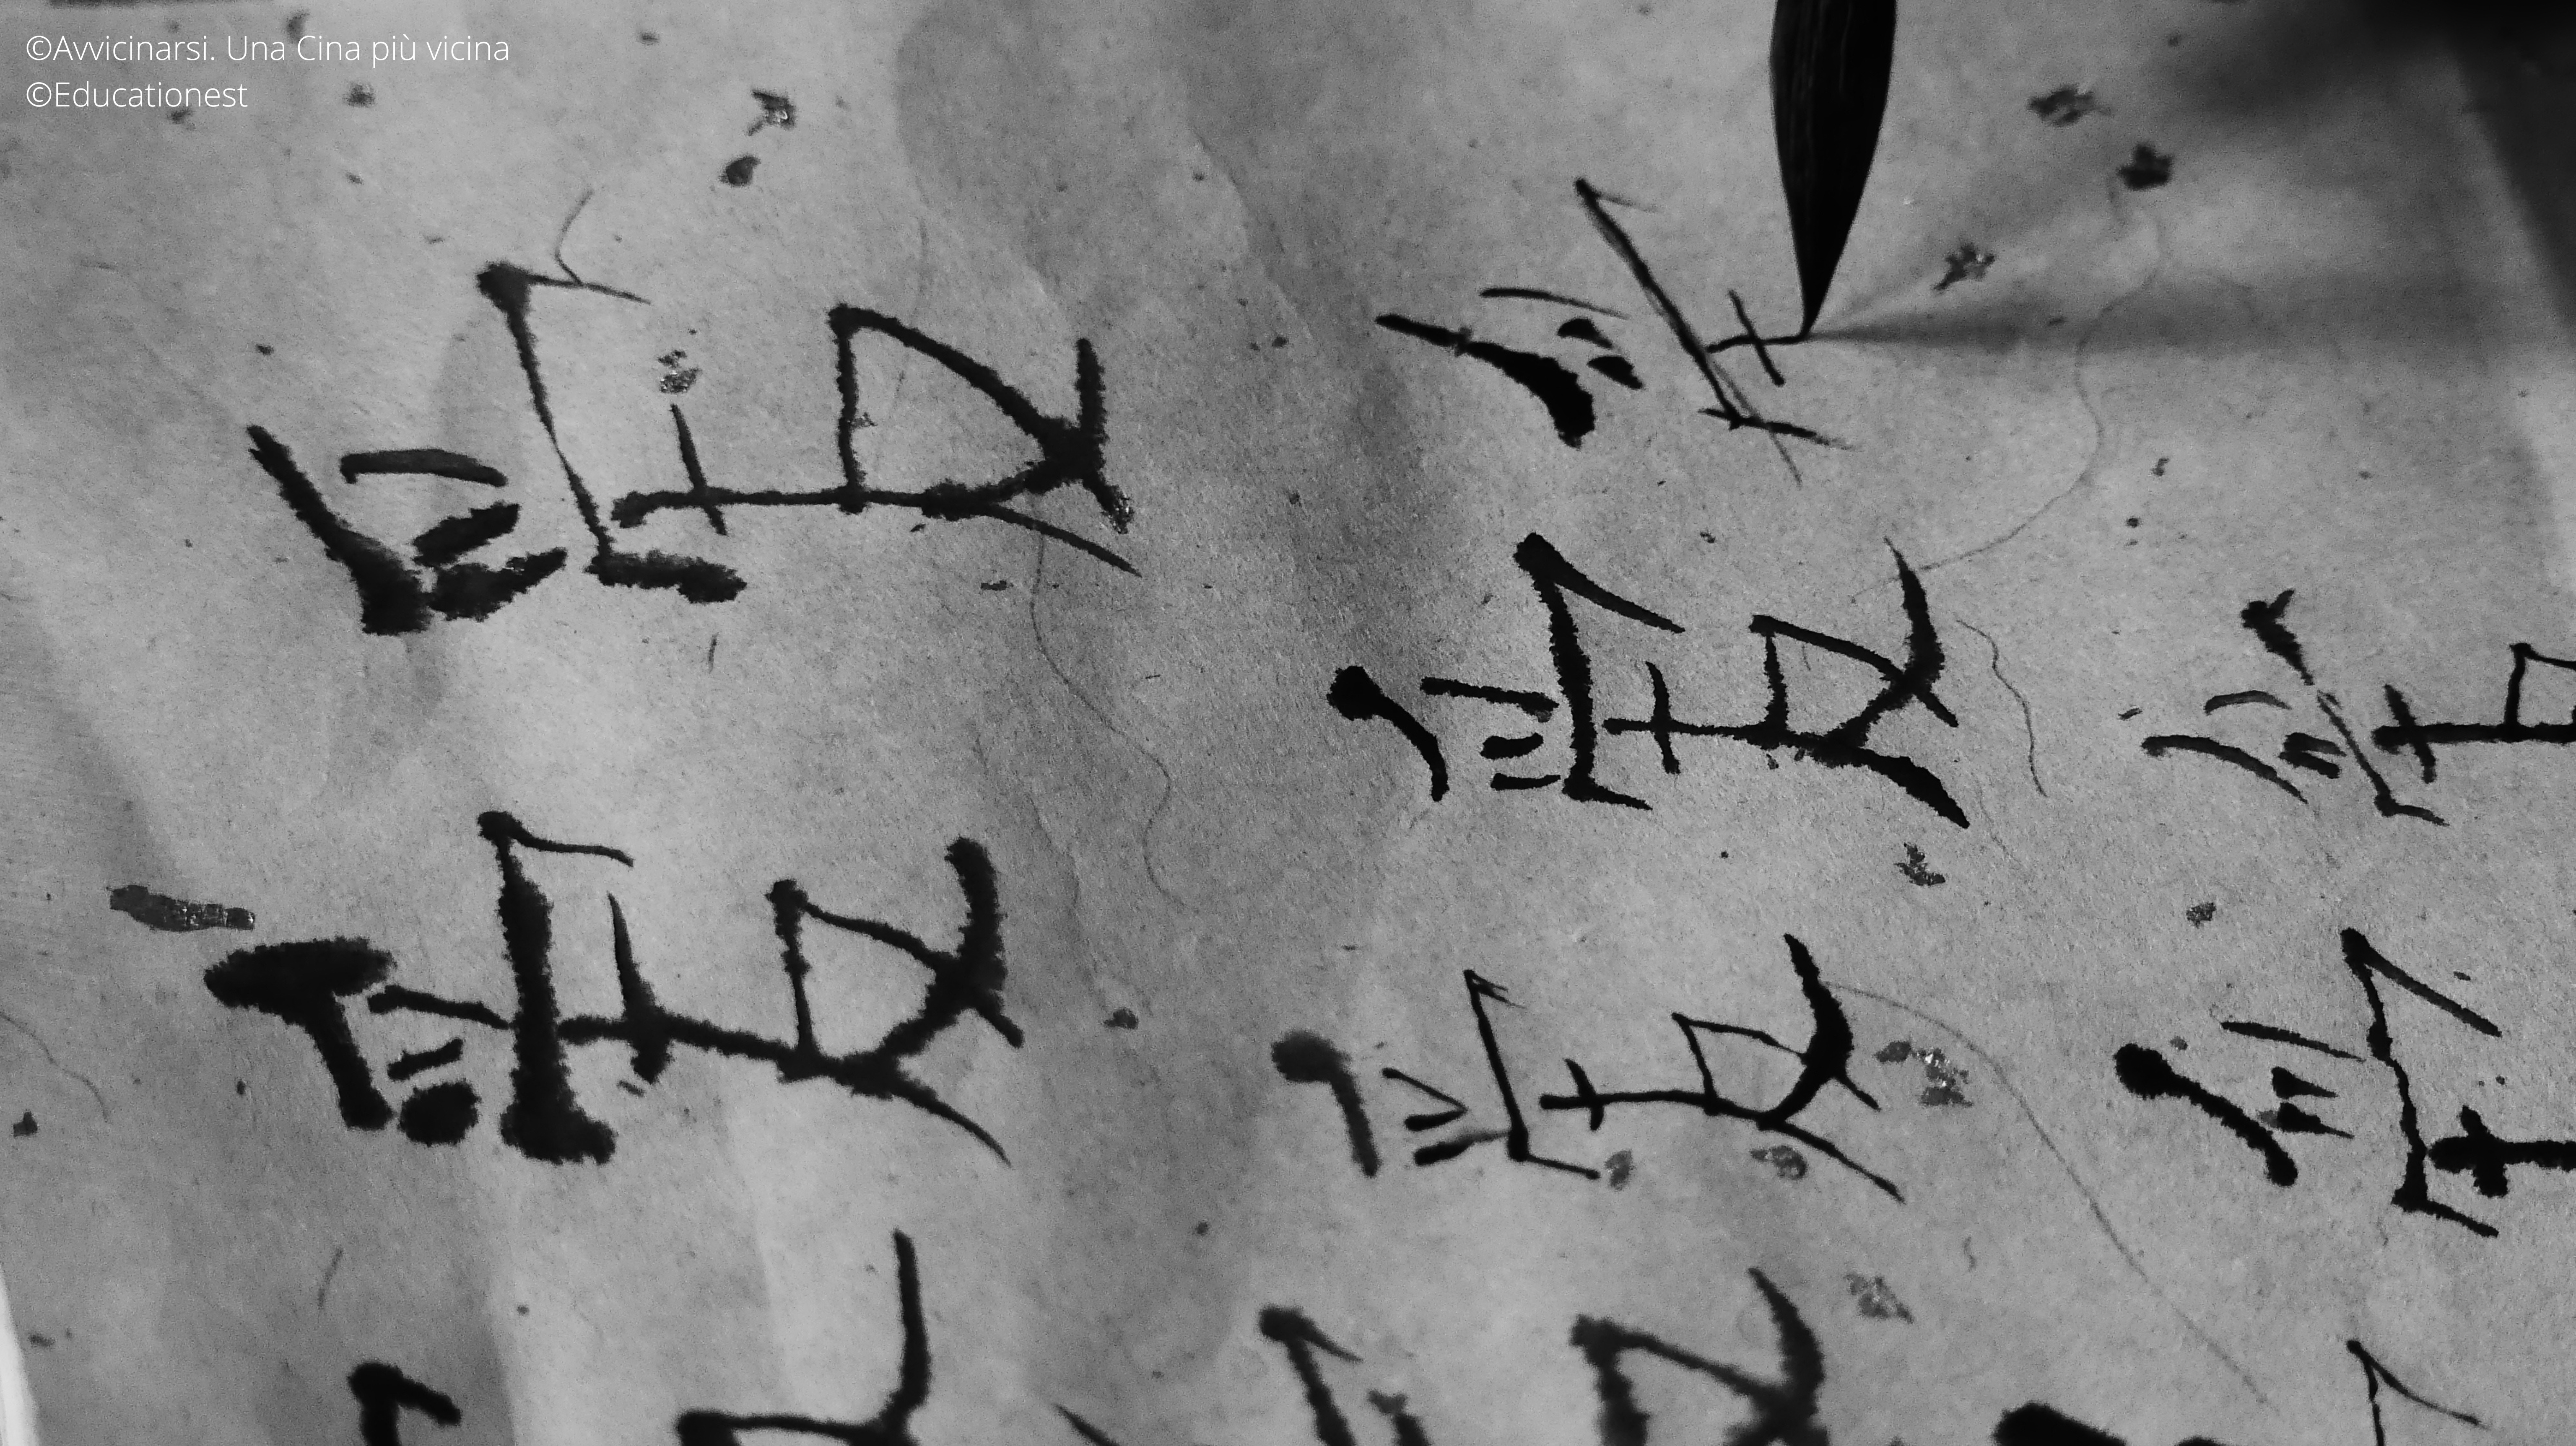 ©Avvicinarsi. Una Cina più vicina
©Educationest
爱 爱
爱 爱